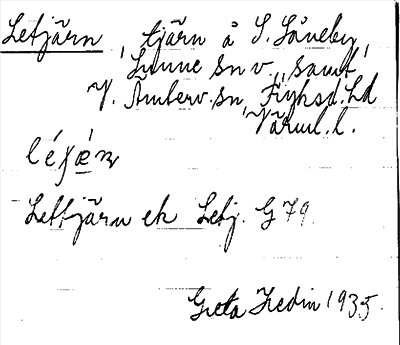 Letjärn, tjärn å S. Såneby,
Lunne sn v., samt
V. Ämterv. sn, Fryksd. hd
Värml. l.
Lettjärn ek Letj. G 79
Greta Hedin 1935.